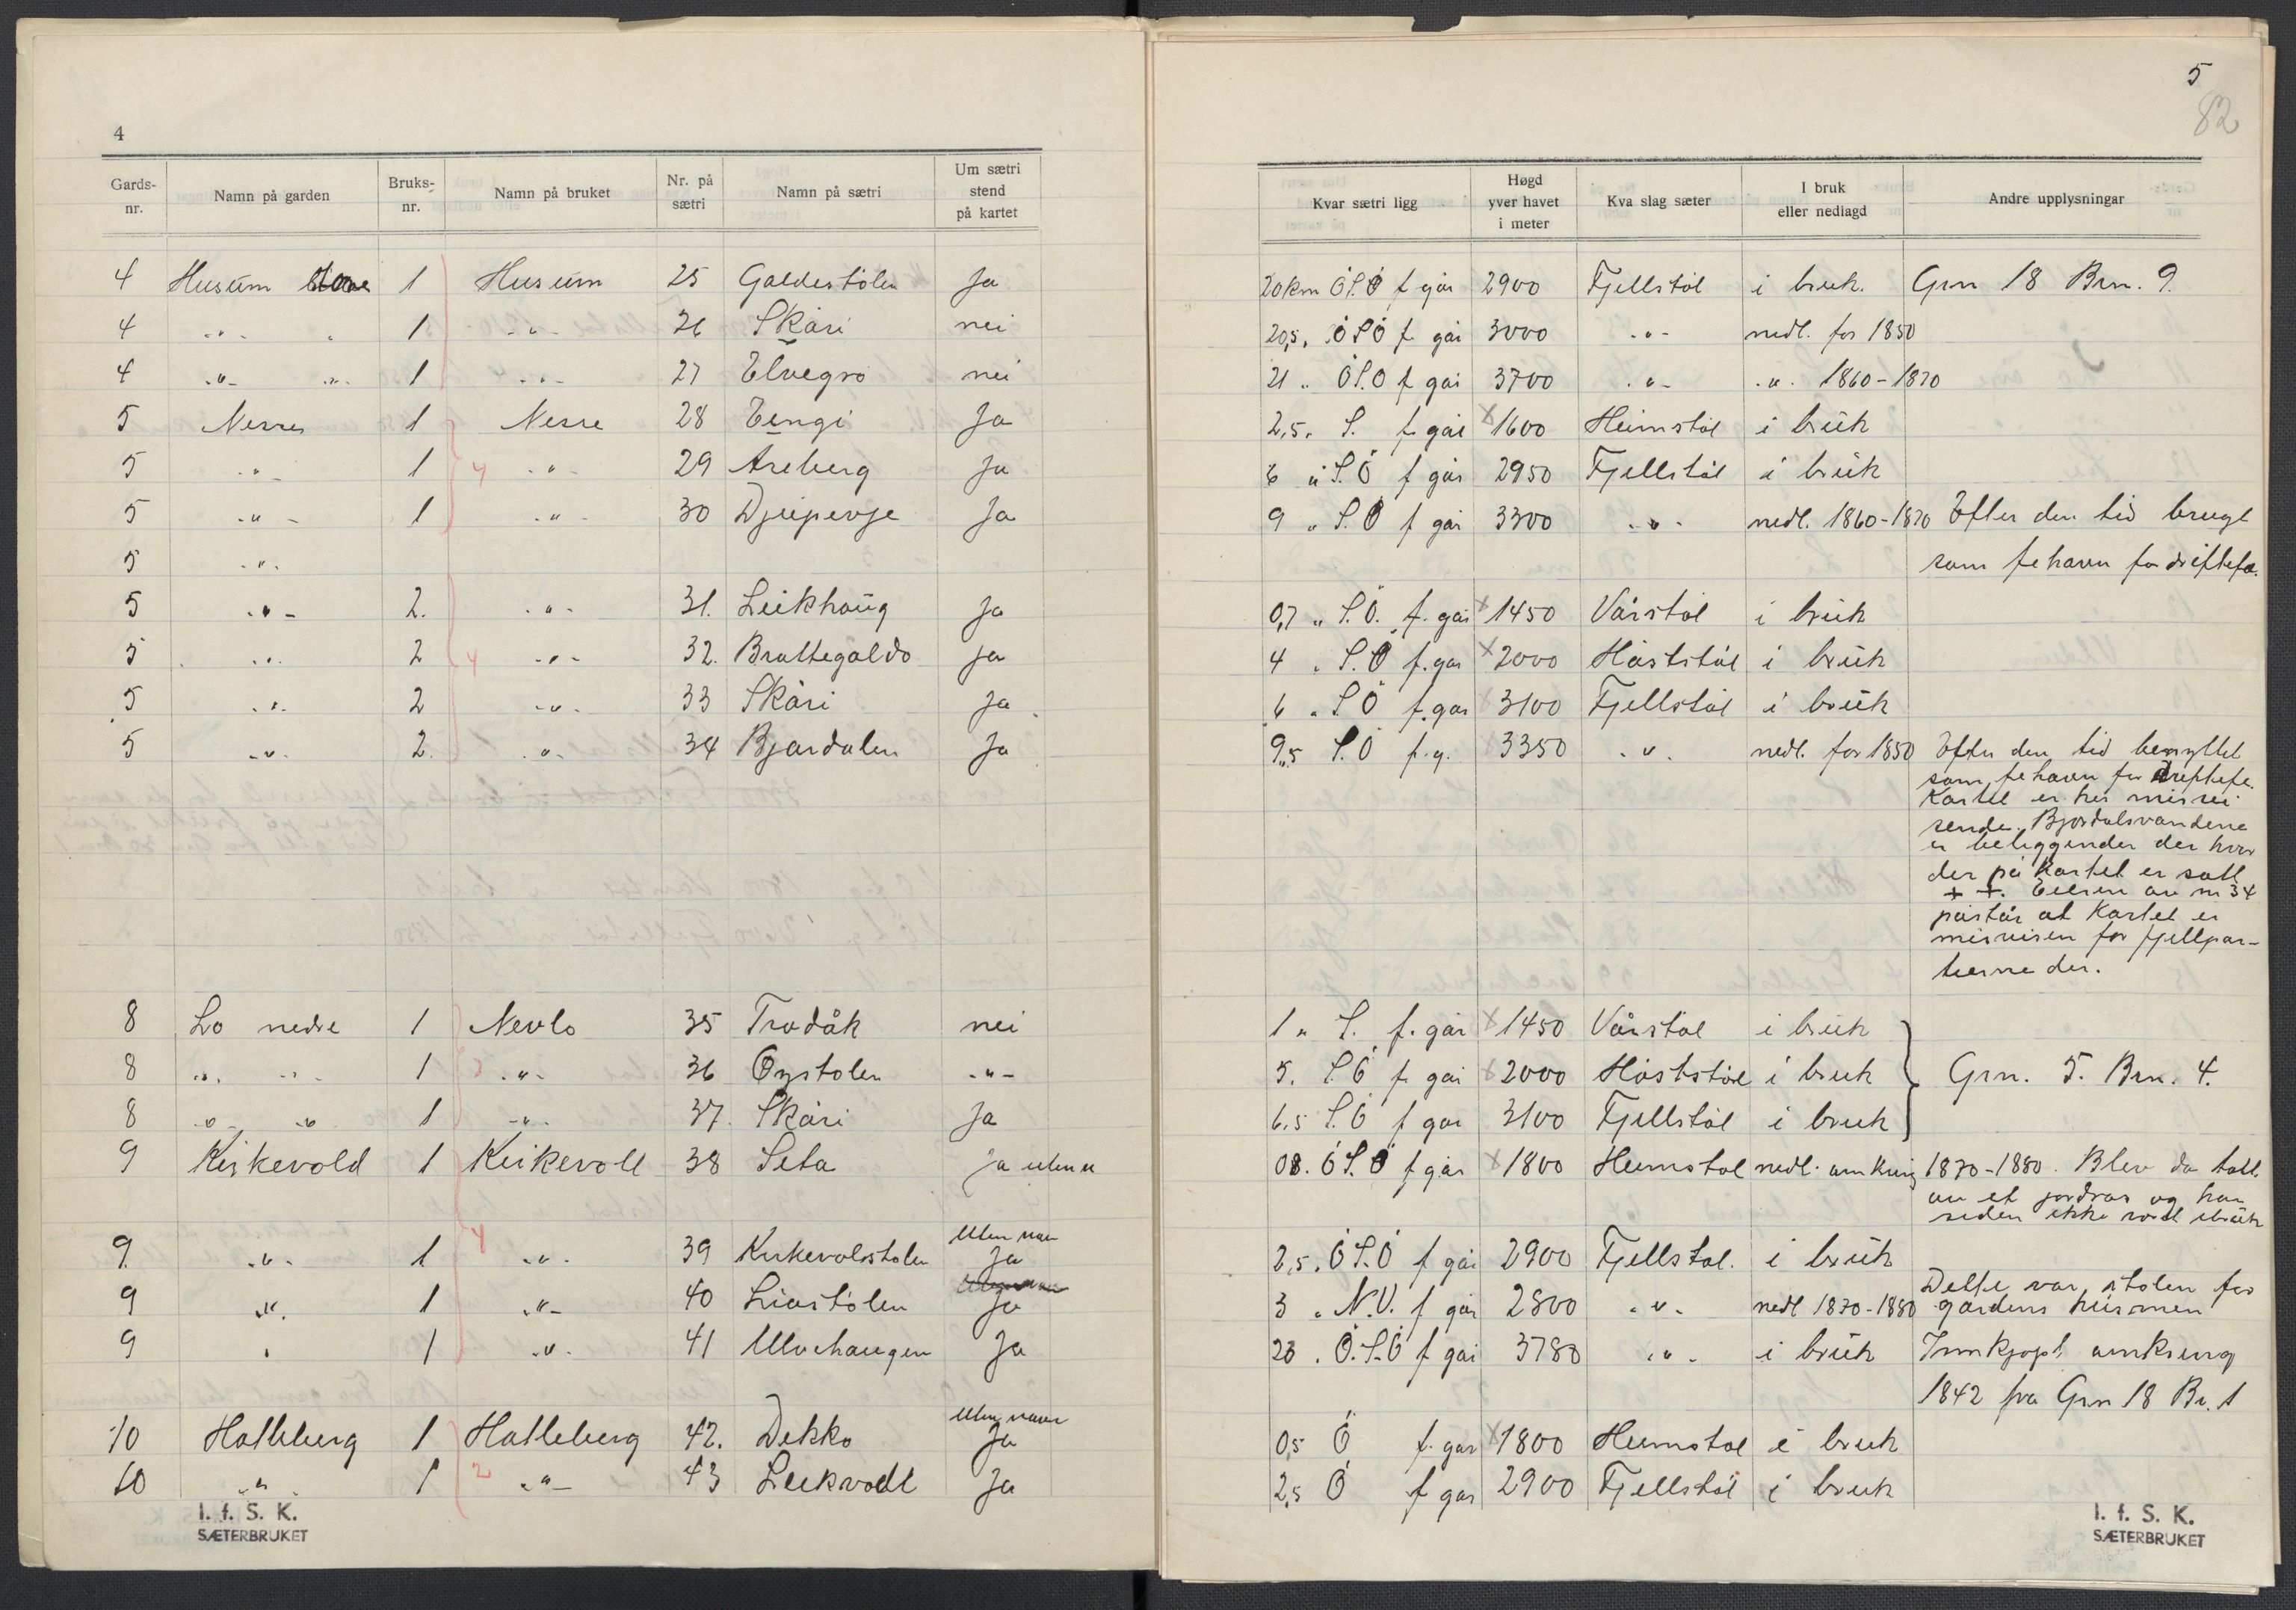 4
Gards-nr. Namn på garden Bruks-nr. Namn på bruket Nr. på sætri Namn på sætri Um sætri stend på kartet
4 Husum 1 Husum 25 Galdestölen Ja
4 -"- 1 -"- 26 Skåri nei
4 -"- -"- 1 -"- 27 Elvegro nei
5 Nesse 1 Nesse 28 Eengi Ja
5 -"- 1 4 -"- 29 Areberg Ja
5 -"- 1 -"- 30 Djupevje Ja
5 -"-
5 -"- 2. -"- 31. Leikhaug Ja
5 -"- 2 4 -"- 32. Brattegaldo ja
5 -"- 2 -"- 33 Skåri Ja
5 -"- 2. -"- 34 Bjordalen Ja
8 Lo nedre 1 Nevlo 35 Trodåk nei
8 -"- -"- 1 3 -"- 36 Öystolen -"-
8 -"- -"- 1 -"- 37. Skåri Ja
9 Kirkevold 1 Kirkevoll 38 Seta ja uten n
9. -"- 1 4 -"- 39 Kirkevolsstolen Uten navn Ja
9 -"- 1 -"- 40 Liastölen Ja
9 " 1 -"- 41 Ulvehaugen Ja
10 Hatleberg 1 Hatleberg 42. Dekko Uten navn Ja
10 -"- 1 2 -"- 43 Leikvoll Ja
I. f. S. K.
SÆTERBRUKET
5
82
Kvar sætri ligg Høgd yver havet i meter Kva slag sæter I bruk eller nedlagd Andre upplysningar
20 km Ö.S.Ö f går 2900 Fjellstöl i bruk. Grn 18 Brn. 9.
20,5 " Ö S Ö f. går 3000 -"- nedl. før 1850
21 " Ö S.Ö f går 3700 -"- -"- 1860-1870
2,5 " S. f. går x 1600 Heimstöl i bruk
6 " S.Ö f går 2950 Fjellstöl i bruk
9 " S.Ö f går 3300 -"- nedl. 1860-1870 Efter den tid brugt
som fehavn for driftefæ.
0,7 " S.Ö. f. går x 1450 Vårstöl i bruk
4 " S.Ö f. går x 2000 Håststöl i bruk
6 " S Ö f. går 3100 Fjellstöl i bruk
9,5 " S.Ö f.g. 3350 -"- nedl. før 1850 Efter den tid benyttet
som fehavn for driftefe.
Kartet er her misvi-
sende. Bjordalsvandene
er beliggender der hvor
der på kartet er satt
+ +. Eieren av nr 34
påstår at kartet er
misvisen for fjellpar-
tierne der.
1 " S. f. går x 1450 Vårstöl i bruk
5. S.Ö f. går x 2000 Håststöl i bruk Grn. 5. Brn. 4.
6,5 S.Ö f går 3100 Fjellstöl i bruk
08. Ö S.Ö f går x 1800 Heimstol nedl. omkring 1870-1880. Blev da tatt
av et jordras og har
siden ikke vært ibruk
2,5 " Ö S.Ö f går 2900 Fjellstol. i bruk
Dette var stolen for
3 " N.V. f går 2800 -"- nedl 1870-1880 gardens husmen
20 " Ö.S.Ö f går 3780 -"- i bruk Innkjøpt omkring
1842 fra Grn 18 Br. 1
0,5 Ö f. går x 1800 Heimstol i bruk
2,5 Ö f går 2900 Fjellstöl i bruk
I. f. S. K.
SÆTERBRUKET